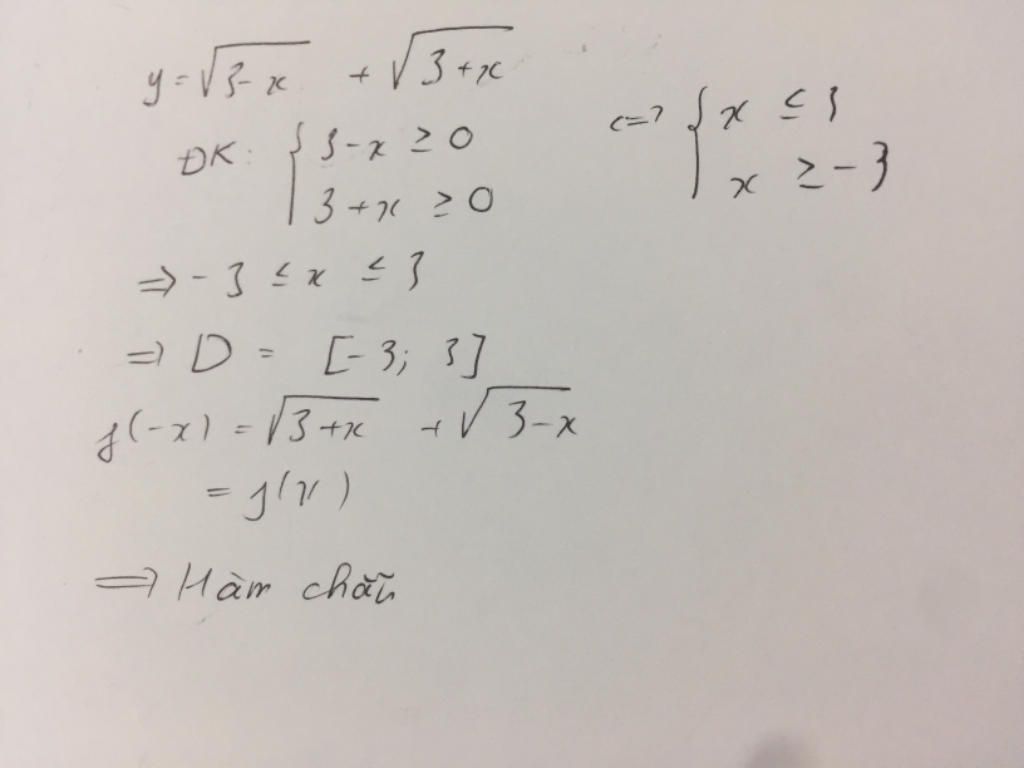 y = √(3-x) + √(3+x)
ĐK: { 3-x ≥ 0 <=> { x ≤ 3
3+x ≥ 0 x ≥ -3
=> -3 ≤ x ≤ 3
=> D = [-3; 3]
f(-x) = √(3+x) + √(3-x)
= f(x)
=> Hàm chẵn